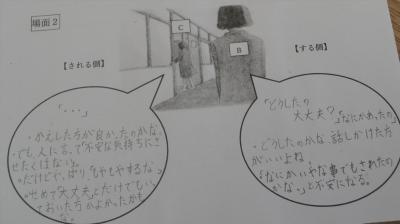 場面2
【される側】
【する側】
C
B
「・・・」
・かえした方が良かったのかな。
・でも、人に言って不安な気持ちにさ
せたくはない。
・だけど、やっぱり「もやもやするな」
・せめて「大丈夫」とだけでもい
ておいた方がよかったかも
な。
「どうしたの
大丈夫?」「なにかあったの」
・どうしたのかな、話しかけた方
がいいよね。
「なにかいやな事でもされたの
かな。」と不安になる。